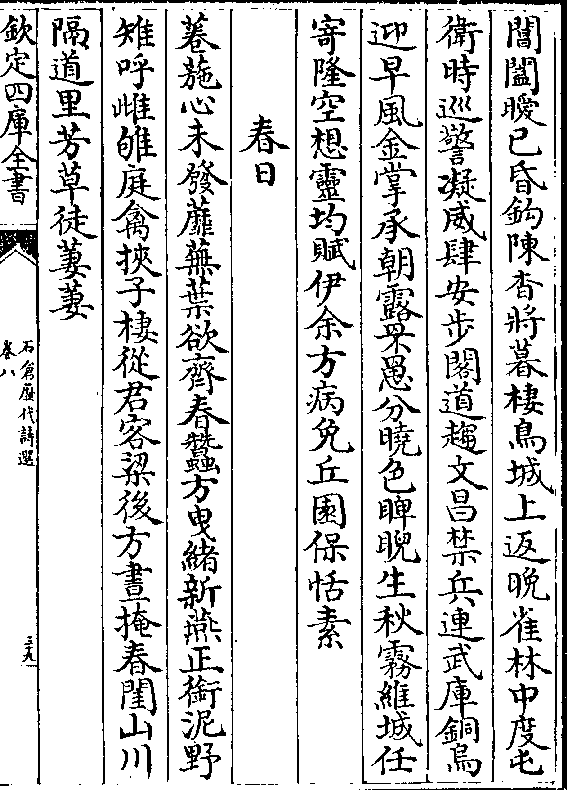 閶闔曖已昏鈎陳杳將暮棲鳥城上返晚雀林中度屯
衛時巡警凝威肆安步閣道趨文昌禁兵連武庫銅烏
迎早風金掌承朝露罘罳分曉色睥睨生秋霧維城任
寄隆空想靈均賦伊余方病免丘園保恬素
春日
菤葹心未發蘼蕪葉欲齊春蠶方曳緒新燕正銜泥野
雉呼雌雊庭禽挾子棲從君客梁後方晝掩春閨山川
隔道里芳草徒萋萋
欽定四庫全書
石倉歷代詩選
卷八
三九